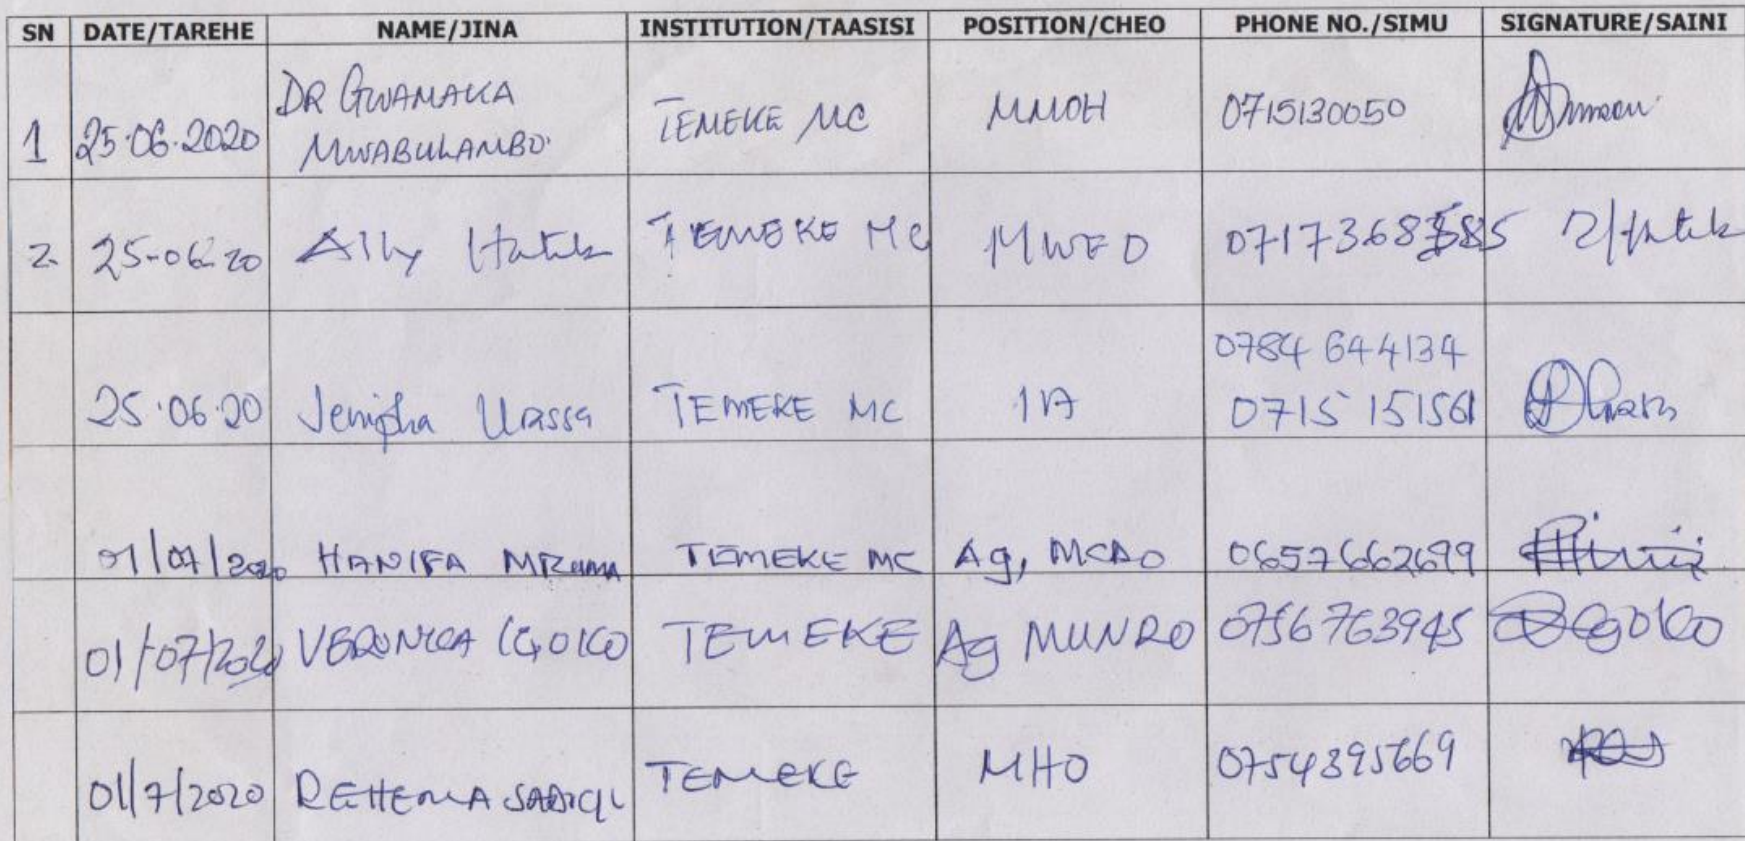 SN DATE/TAREHE NAME/JINA INSTITUTION/TAASISI POSITION/CHEO PHONE NO./SIMU SIGNATURE/SAINI
1 25.06.2020 DR GWAMAKA MWABULAMBO. TEMEKE MC MMOH 0715130050
2. 25-06-20 Ally TEMEKE MC MWEO
25.06.20 Jenipha Urassa TEMEKE MC IA 0784 644134
0715 151561
01/07/2020 HANIFA MZUMA TEMEKE MC Ag, MCDO 0657662699
01/07/2020 VERONICA TEMEKE Ag MUNRO 0756763945
01/7/2020 REHEMA SADICK TEMEKE MHO 0754395669